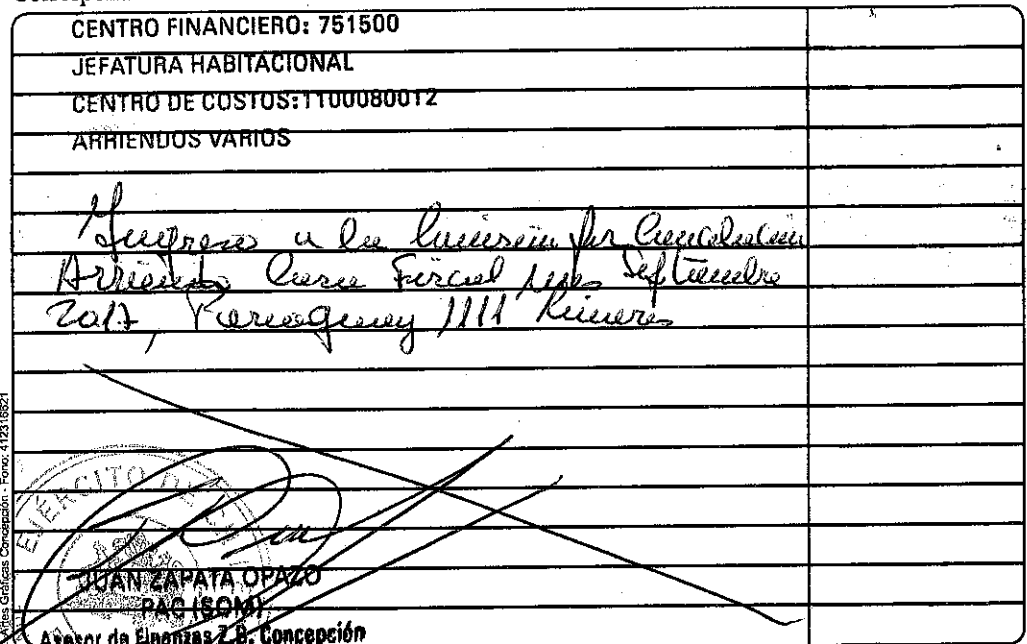 CENTRO FINANCIERO: 751500
JEFATURA HABITACIONAL
CENTRO DE COSTOS:1100080012
ARRIENDOS VARIOS
Ingreso a la por Cancelación
Arriendo Casa Fiscal mes Septiembre
2017, Paraguay 1111 Linares
EJÉRCITO DE
JUAN ZAPATA OPAZO
PAC (SOM)
Asesor de Finanzas Z.B. Concepción
Artes Gráficas Concepción - Fono: 4123166621